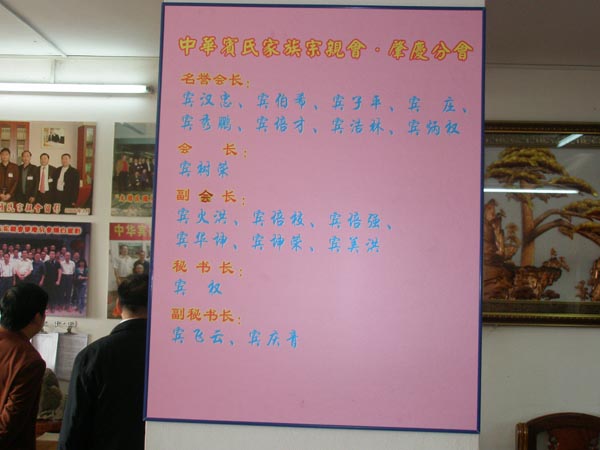 中華賓氏家族宗親會·肇慶分會
名誉会长：
宾汉忠、宾伯希、宾子平、宾 庄、
宾秀鹏、宾培才、宾浩林、宾炳权
会 长：
宾树荣
副会长：
宾火洪、宾培枝、宾培强、
宾华坤、宾坤荣、宾美洪
秘书长：
宾 权
副秘书长：
宾飞云、宾庆音
中华宾